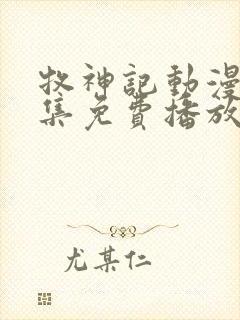 牧神記動漫
集免費播放
尤某仁